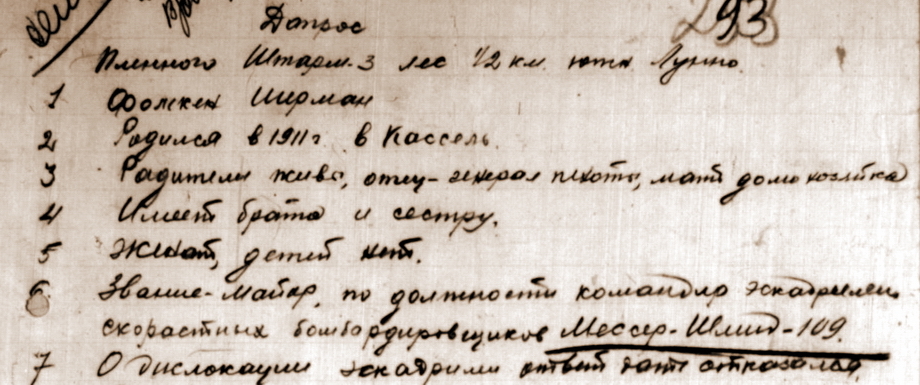 293
Допрос
Пленного Штарм-3 лес 1/2 км. южн Лунно.
1 Фолькен Ширман
2 Родился в 1911г. в Кассель.
3 Радители живы, отец-генерал пехоты, мать домохозяйка
4 Имеет брата и сестру.
5 Женат, детей нет.
6 Звание-майор, по должности командир эскадрильи
скорастных бомбардировщиков Мессер-Шмид-109.
7 О дислокации эскадрили ответ дать отказался